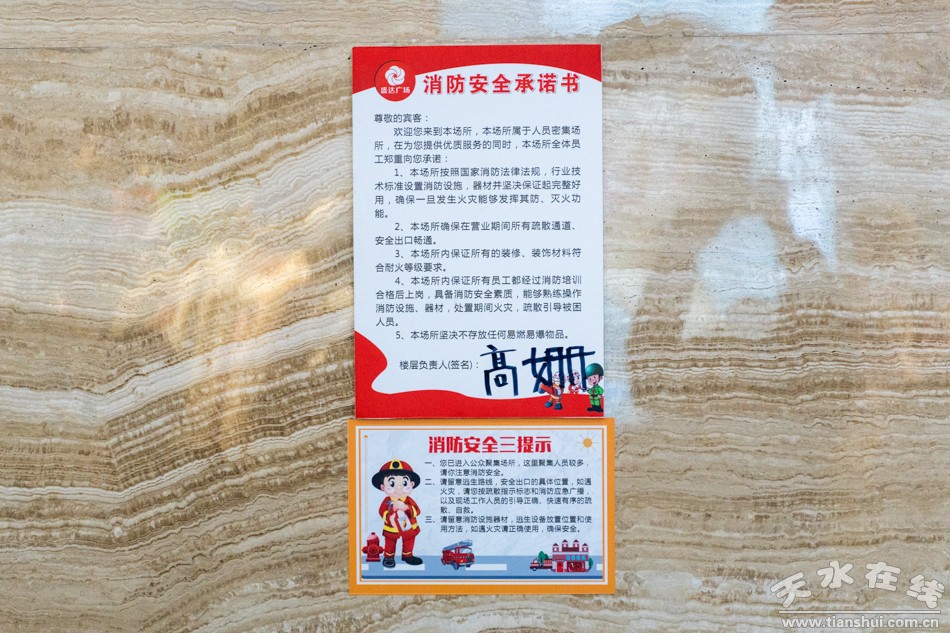 盛达广场
消防安全承诺书
尊敬的宾客：
欢迎您来到本场所，本场所属于人员密集场
所，在为您提供优质服务的同时，本场所全体员
工郑重向您承诺：
1、本场所按照国家消防法律法规，行业技
术标准设置消防设施，器材并坚决保证起完整好
用，确保一旦发生火灾能够发挥其防、灭火功
能。
2、本场所确保在营业期间所有疏散通道、
安全出口畅通。
3、本场所内保证所有的装修、装饰材料符
合耐火等级要求。
4、本场所内保证所有员工都经过消防培训
合格后上岗，具备消防安全素质，能够熟练操作
消防设施、器材，处置期间火灾，疏散引导被困
人员。
5、本场所坚决不存放任何易燃易爆物品。
楼层负责人(签名)：高姗
消防安全三提示
一、您已进入公众聚集场所，这里聚集人员较多，
请你注意消防安全。
二、请留意逃生路线，安全出口的具体位置，如遇
火灾，请您按疏散指示标志和消防应急广播，
以及现场工作人员的引导正确、快速有序的疏
散、自救。
三、请留意消防设施器材，逃生设备放置位置和使
用方法，如遇火灾请正确使用，确保安全。
天水在线
www.tianshui.com.cn